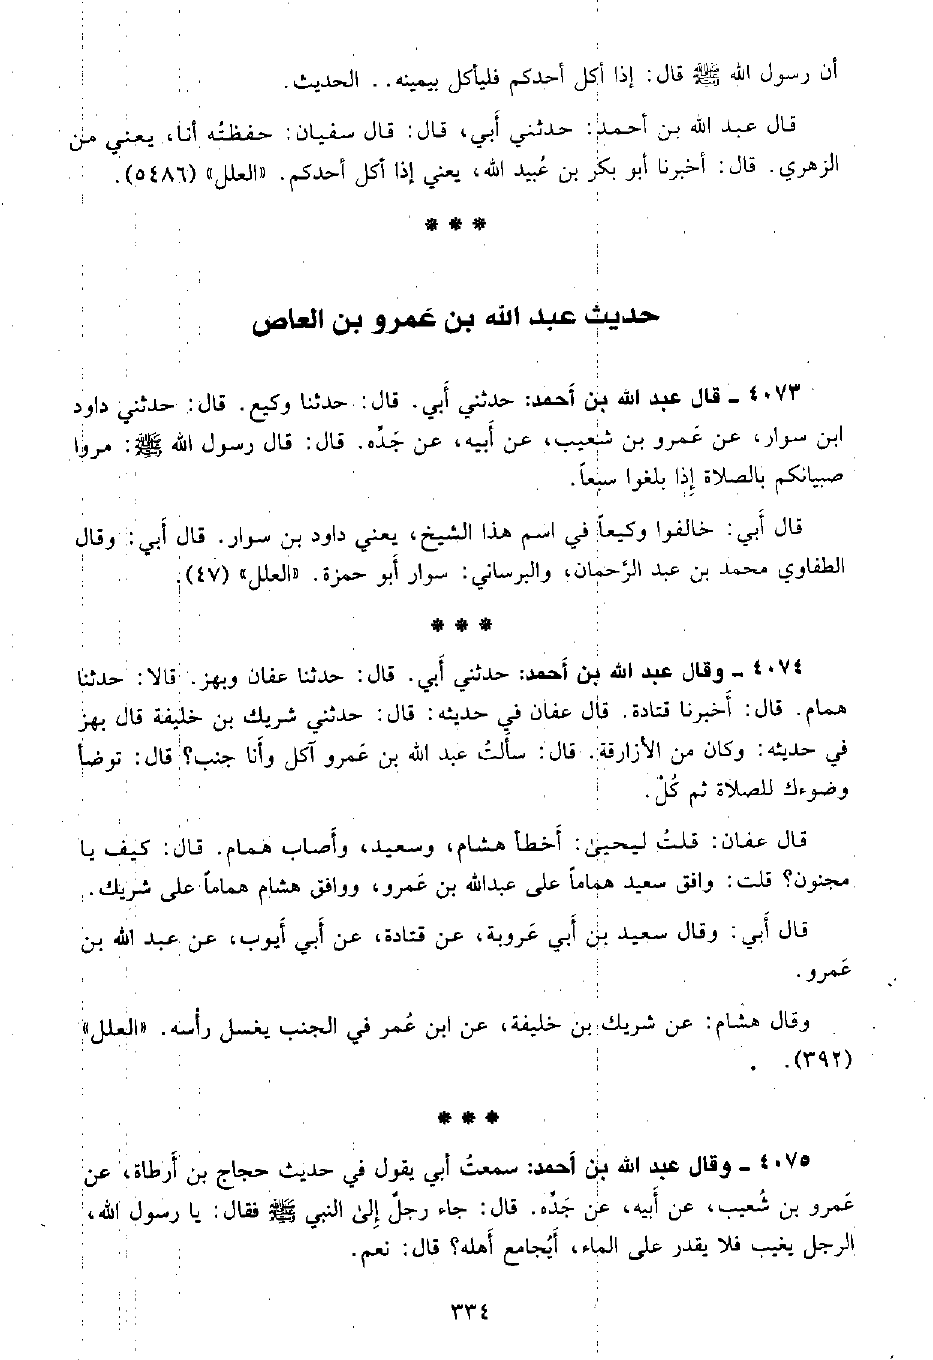 أن رسول الله ﷺ قال: إذا أكل أحدكم فليأكل بيمينه.. الحديث.
قال عبد الله بن أحمد: حدثني أبي، قال: قال سفيان: حفظتُه أنا، يعني من
الزهري. قال: أخبرنا أبو بكر بن عُبيد الله، يعني إذا أكل أحدكم. «العلل» (٥٤٨٦).
* * *
حديث عبد الله بن عَمرو بن العاص
٤٠٧٣ ـ قال عبد الله بن أحمد: حدثني أَبي. قال: حدثنا وكيع. قال: حدثني داود
ابن سوار، عن عَمرو بن شُعيب، عن أَبيه، عن جَدِّه. قال: قال رسول الله ﷺ: مروا
صبيانكم بالصلاة إِذا بلغوا سبعاً.
قال أَبي: خالفوا وكيعاً في اسم هذا الشيخ، يعني داود بن سوار. قال أَبي: وقال
الطفاوي محمد بن عبد الرَّحمان، والبرساني: سوار أَبو حمزة. «العلل» (٤٧).
* * *
٤٠٧٤ ـ وقال عبد الله بن أَحمد: حدثني أَبي. قال: حدثنا عفان وبهز. قالا: حدثنا
همام. قال: أَخبرنا قتادة. قال عفان في حديثه: قال: حدثني شريك بن خليفة قال بهز
في حديثه: وكان من الأزارقة. قال: سأَلتُ عبد الله بن عَمرو آكل وأَنا جنب؟ قال: توضأ
وضوءك للصلاة ثم كُلْ.
قال عفان: قلتُ ليحيىٰ: أَخطأ هشام، وسعيد، وأَصاب همام. قال: كيف يا
مجنون؟ قلت: وافق سعيد هماماً على عبدالله بن عَمرو، ووافق هشام هماماً على شريك.
قال أَبي: وقال سعيد بن أَبي عَروبة، عن قتادة، عن أَبي أَيوب، عن عبد الله بن
عَمرو.
وقال هشام: عن شريك بن خليفة، عن ابن عُمر في الجنب يغسل رأسه. «العلل»
(٣٩٢).
* * *
٤٠٧٥ ـ وقال عبد الله بن أَحمد: سمعتُ أبي يقول في حديث حجاج بن أَرطاة، عن
عَمرو بن شُعيب، عن أَبيه، عن جَدِّه. قال: جاء رجلٌ إِلىٰ النبي ﷺ فقال: يا رسول الله،
الرجل يغيب فلا يقدر على الماء، أَيُجامع أهله؟ قال: نعم.
٣٣٤